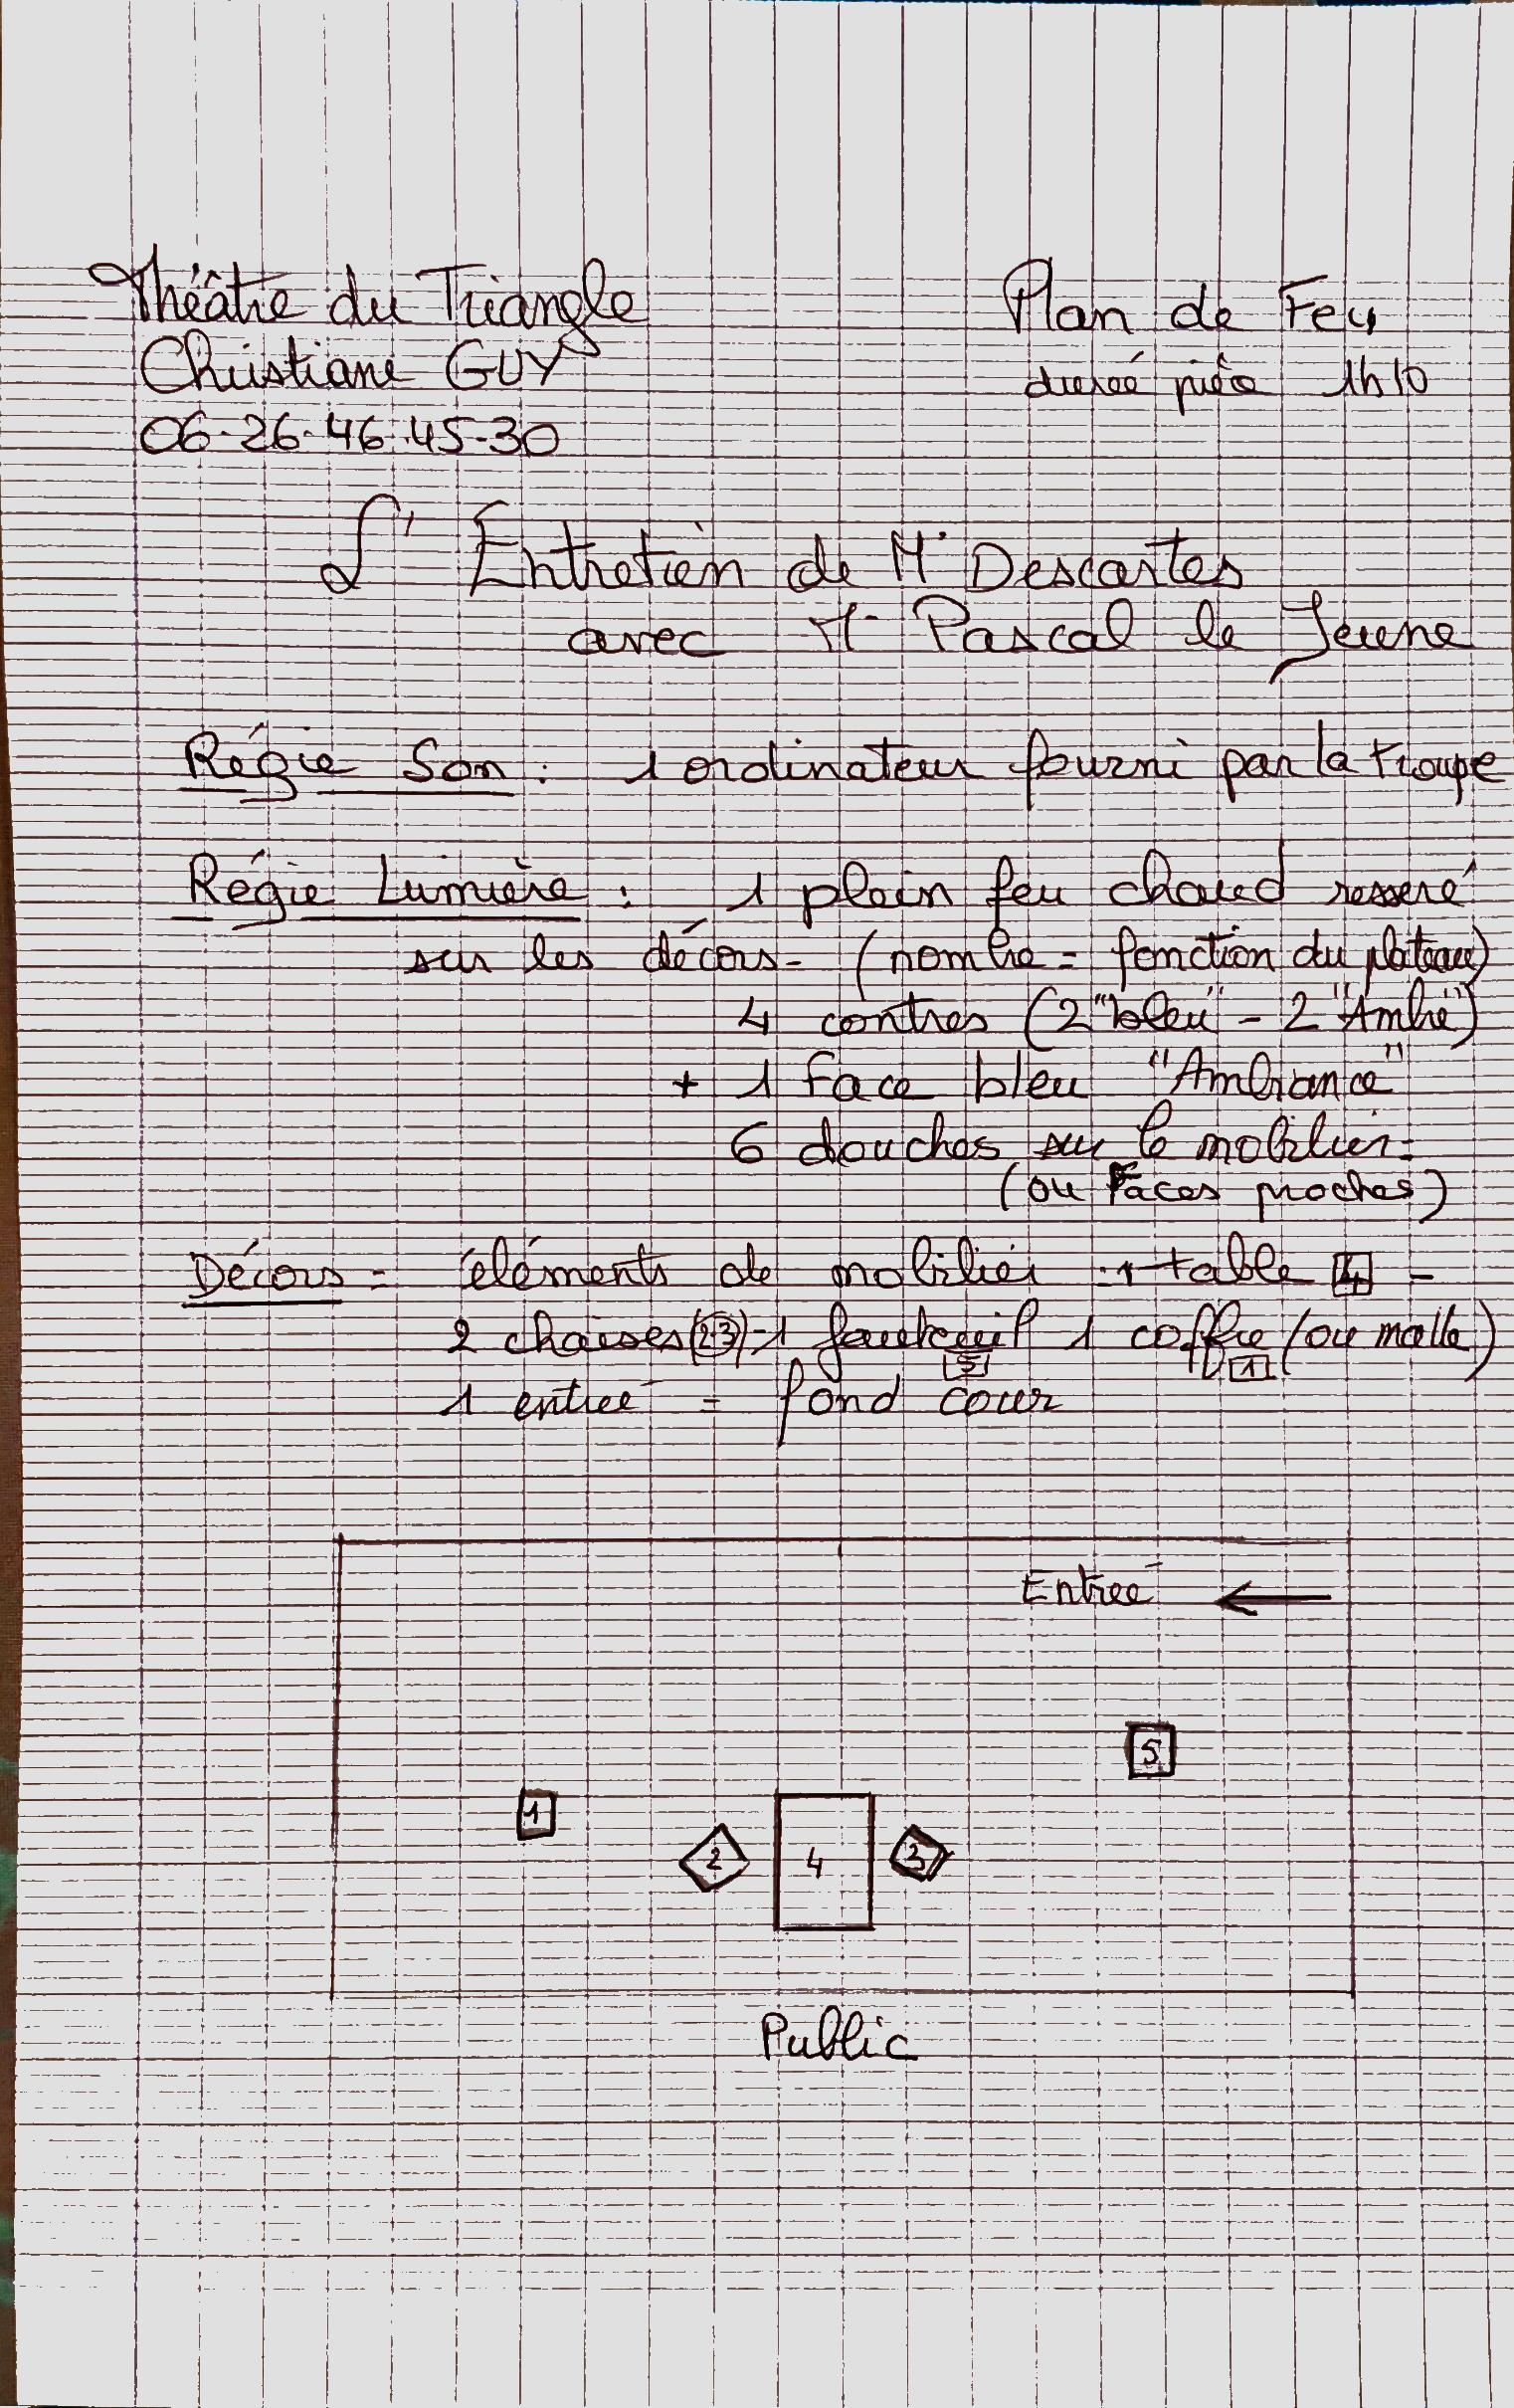 Théâtre du Triangle
Plan de Feu
Christiane GUY
durée pièce 1h10
06-26-46-45-30
L'Entretien de Mr Descartes
avec Mr Pascal le Jeune
Régie Son : 1 ordinateur fourni par la troupe
Régie Lumière : 1 plein feu chaud resserré
sur les décors - (nombre = fonction du plateau)
4 contres (2 "bleu" - 2 "Ambré")
+ 1 Face bleu "Ambiance"
6 douches sur le mobilier -
(ou Faces proches)
Décors = éléments de mobilier : 1 table 4 -
2 chaises (2 3) - 1 fauteuil 1 coffre (ou malle)
5 1
1 entrée = fond cour
Entrée ←
5
1
2 4 3
Public